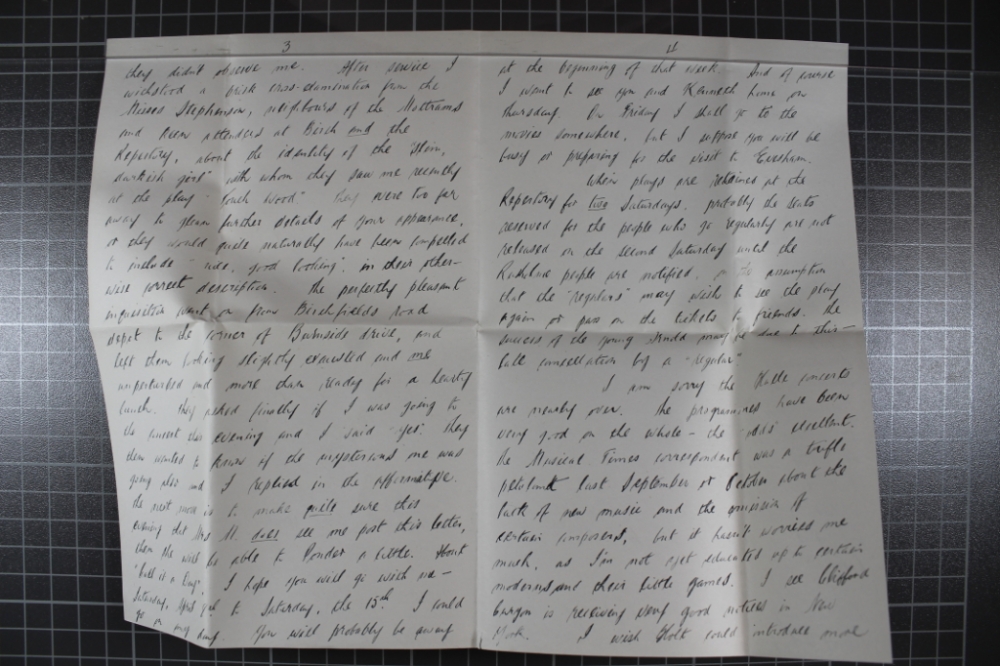 3
they didn't observe me. After service I
withstood a brisk cross-examination from the
Misses Stephenson, neighbours of the Mottrams
and keen attenders at Birch and the
Repertory, about the identity of the "slim,
darkish girl" with whom they saw me recently
at the play - "Touch Wood" They were too far
away to glean further details of your appearance,
or they would quite naturally have been compelled
to include - "nice, good looking", in their other-
wise correct description. The perfectly pleasant
inquisition went on from Birchfields road
depot to the corner of Burnside drive, and
left them looking slightly exhausted and me
unperturbed and more than ready for a hearty
lunch. They asked finally if I was going to
the concert this evening and I said "yes". They
then wanted to know if the mysterious one was
going also and I replied in the affirmative.
the next move is to make quite sure this
evening that Mrs M. does see me post this letter,
then she will be able to ponder a little. About
I hope you will go with me -
Saturday, to Saturday, the 15th. I could
go on my You will probably be away
4
at the beginning of that week. And of course
I want to see you and Kenneth home on
Thursday On Friday I shall go to the
movies somewhere, but I suppose you will be
busy or preparing for the visit to Evesham.
When plays are retained at the
Repertory for two Saturdays, probably the seats
reserved for the people who go regularly are not
released on the second Saturday until the
Rusholme people are notified, assumption
that the "regulars" may wish to see the play
again or pass on the tickets to friends. The
success of the young may be due to this
late cancellation by a "regular"
I am sorry the Halle concerts
are nearly over. The programmes have been
very good on the whole - the excellent.
The Musical Times correspondent was a trifle
petulant last September or October about the
lack of new music and the omission of
certain composers, but it hasn't worried me
much, as I'm not yet educated up to certain
moderns and their little games. I see Clifford
Curzon is receiving very good notices in New
York. I wish Holt could introduce more